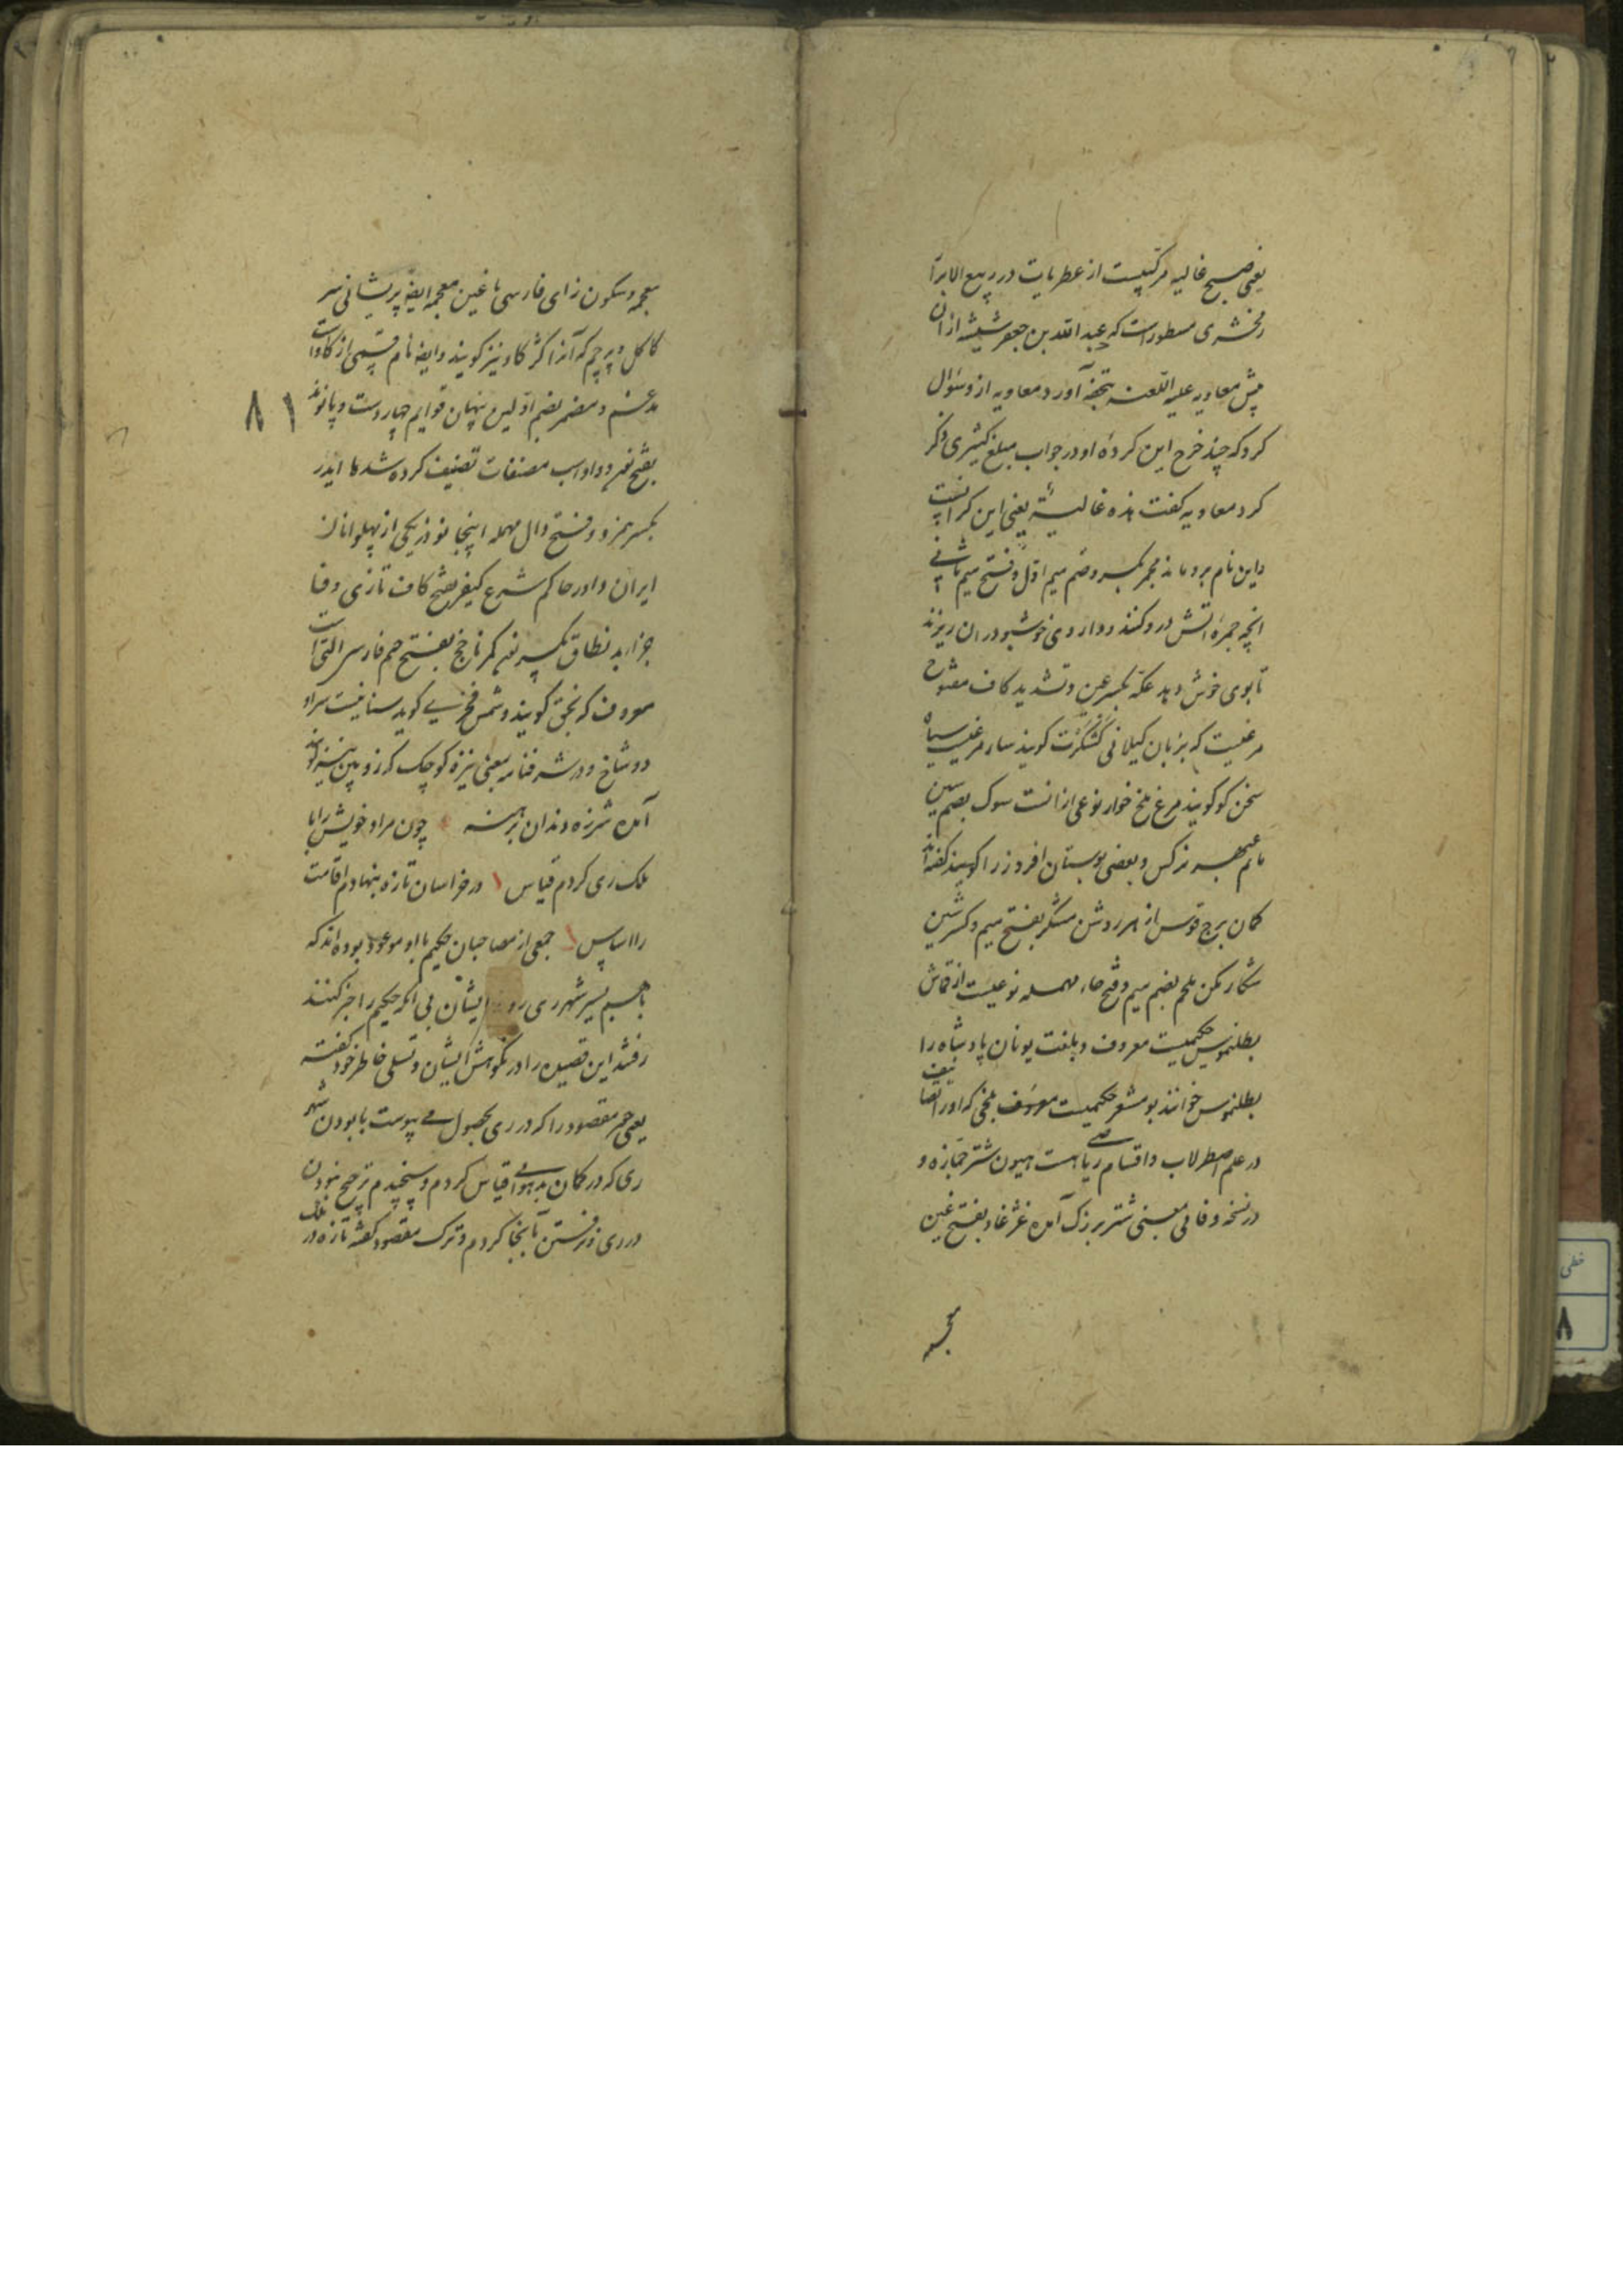 یعنی صبح غالیه مرکبیست از عطریات در ربیع الابرار
زمخشری مسطور است که عبد الله بن جعفر شیشه ازان
پیش معاویه علیه اللعنه بتحفه آورد معاویه از و سؤال
کرد که چند خرج این کرده او در جواب مبلغ کثیری ذکر
کرد معاویه گفت هذه غالیة یعنی این گرانست
و این نام برو ماند مجمر بکسر و ضم میم اول و فتح میم ثانی
انچه جمره آتش درو کنند و داروی خوشبو در ان ریزند
تا بوی خوش دهد عکه بکسر عین و تشدید کاف مفتوح
مرغیست که بزبان گیلانی کشکرت گویند سار مرغیست سیاه
سخن گو گویند مرغ ملخ خوار نوعی ازانست سوک بضم سین
ماتم عبهر نرگس و بعضی بوستان افروز را گویند گفته‌اند
کمان برج قوس از هر روشن مشکر بفتح میم و کسر شین
شکار مکن ملحم بضم میم و فتح حاء مهمله نوعیست از قماش
بطلنموس حکیمیست معروف و بلغت یونان پادشاه را
بطلنموس خوانند بو مشعر حکیمیست معروف بلخی که او را تصانیف
در علم اصطرلاب و اقسام ریاضی هست هیون شتر جمازه و
در نسخه وفائی بمعنی شتر بزرگ آمده غژغاو بفتح غین
معجمه
معجمه و سکون زای فارسی با غین معجمه ایضا پریشانی سر
کاکل و پرچم که آنرا کژ گاو نیز گویند و ایضا نام قسمی از گاوانست
مدغم و مضمر بضم اولین پنهان قوایم چهار دست و پا
۸۱
بفتح نهر و واو اسب مصنفات تصنیف کرده شدها ایدر
بکسر همزه و فتح دال مهمله اینجا نوذر یکی از پهلوانان
ایران داور حاکم شرع کیفر بفتح کاف تازی و فا
جزا بد نطاق بکسر نون کمر ناچخ بفتح جیم فارسی آلتی است
معروف که نجق گویند و شمس فخری گوید سنانیست سر او
دو شاخ و در شرفنامه بمعنی نیزه کوچک که زوبین نیز گویند
آمده شرزه دندان برهنه چون مراد خویش را با
ملک ری کردم قیاس در خراسان تازه بنهادم اقامت
را اساس جمعی از مصاحبان حکیم با او موعود بوده‌اند که
باهم بسیر شهر ری روند ایشان بی آنکه حکیم را خبر کنند
رفتند این قصیده را در نکوهش ایشان و تسلی خاطر خود گفته
یعنی چون مقصود را که در ری بحصول می پیوست با بودن شهر
ری که در کمان بد هوایی قیاس کردم و سنجیدم ترجیح بنودن
در ری و نرفتن بآنجا کردم و ترک مقصود گفته تازه در ملک